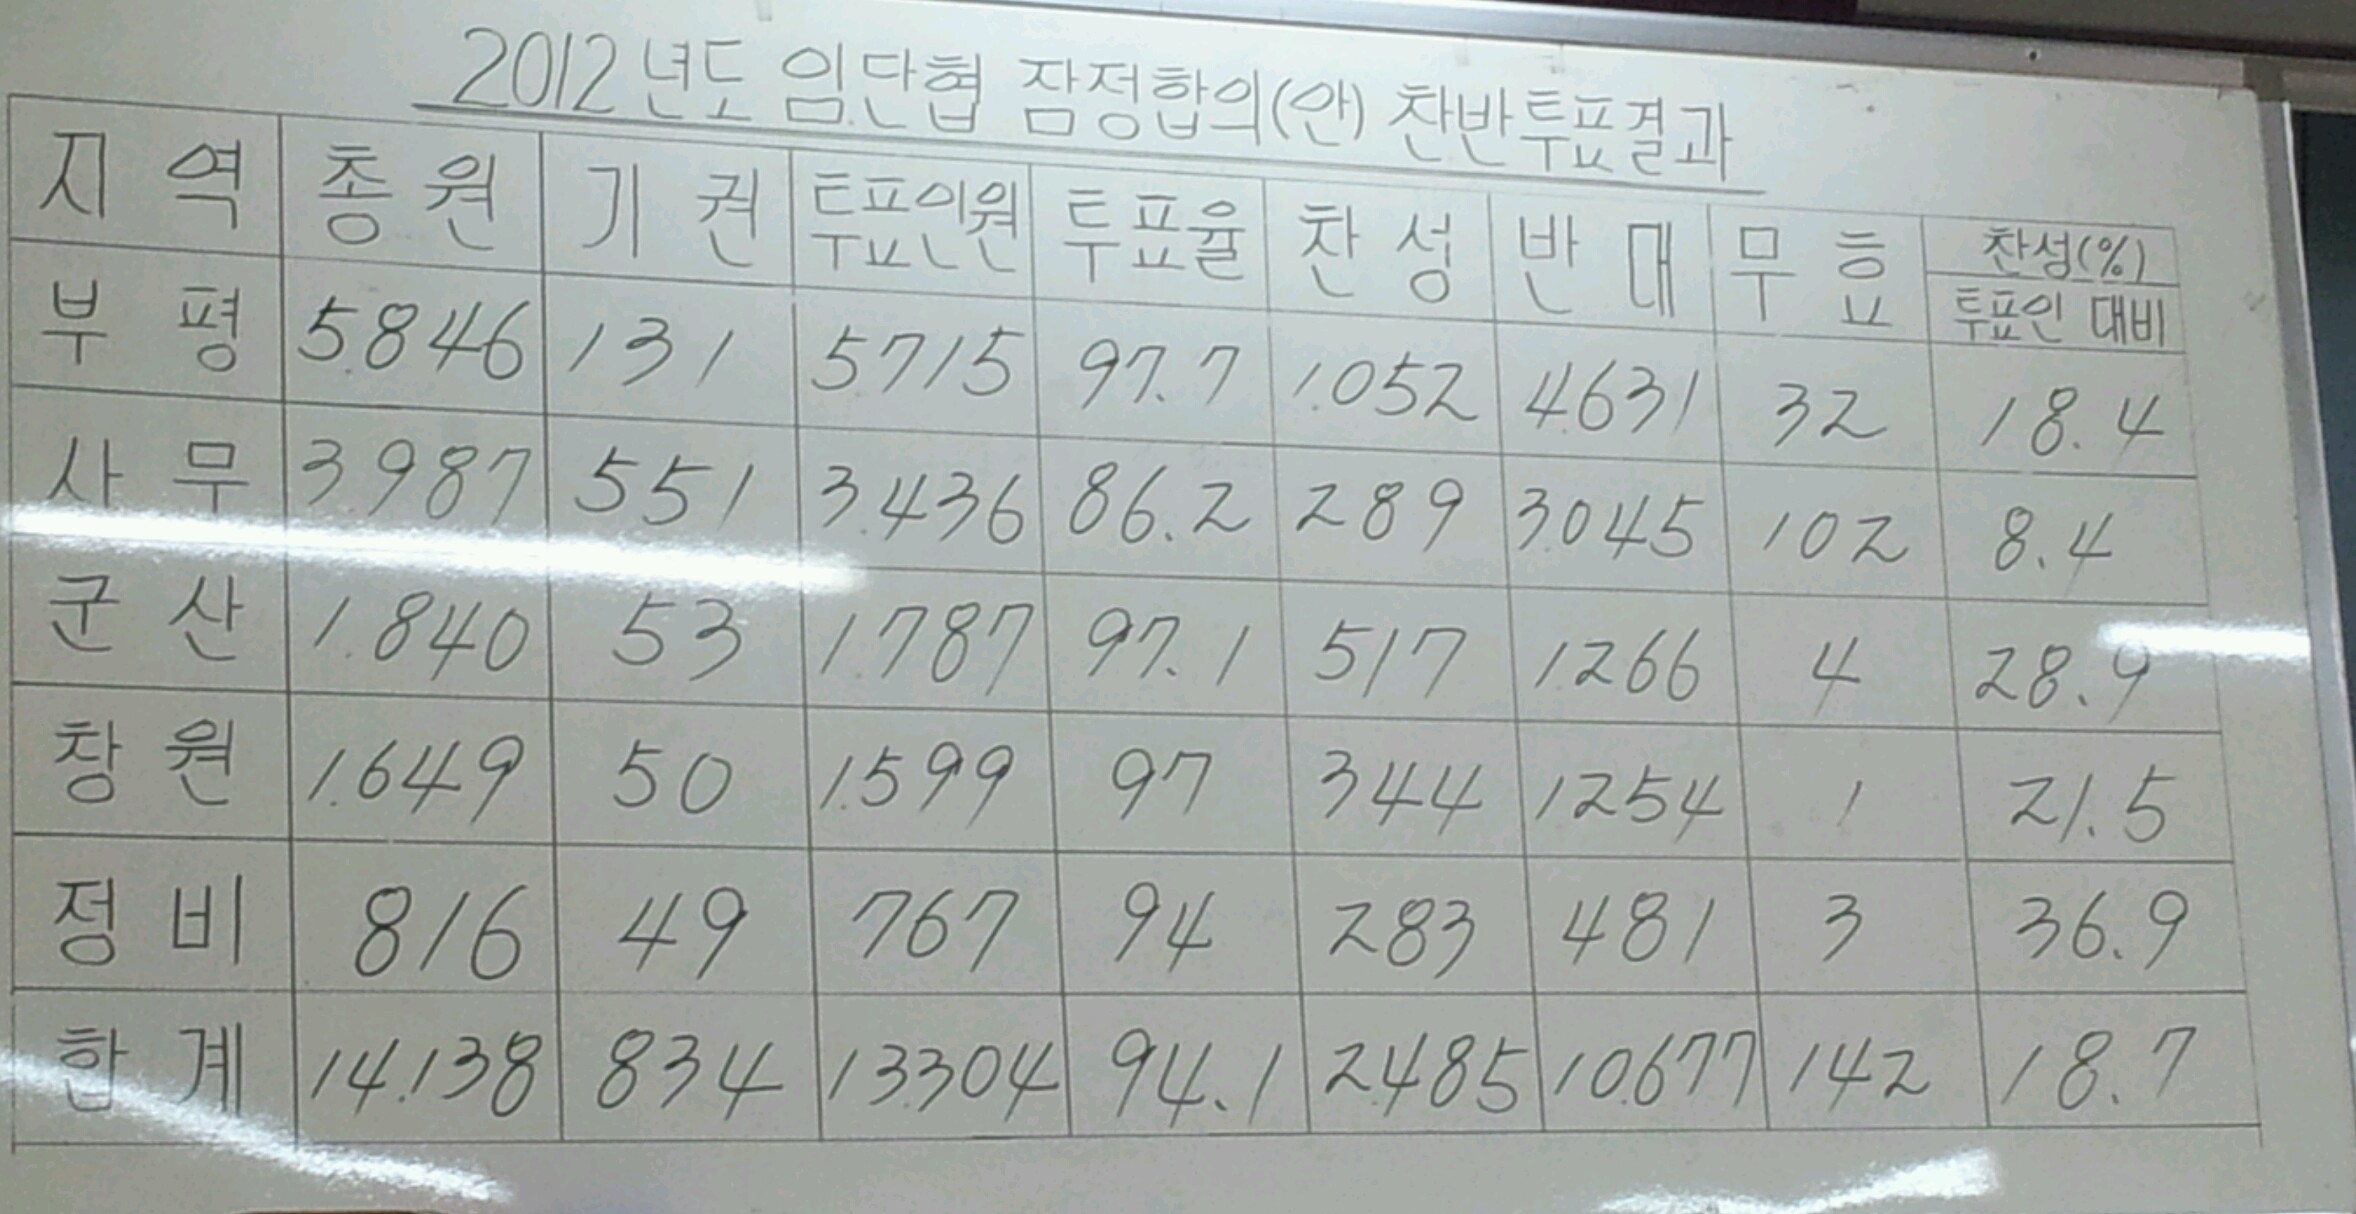 2012년도 임단협 잠정합의(안) 찬반투표결과
지역 총원 기권 투표인원 투표율 찬성 반대 무효 찬성(%) 투표인 대비
부평 5.846 131 5.715 97.7 1.052 4.631 32 18.4
사무 3.987 551 3.436 86.2 289 3.045 102 8.4
군산 1.840 53 1.787 97.1 517 1.266 4 28.9
창원 1.649 50 1.599 97 344 1254 1 21.5
정비 816 49 767 94 283 481 3 36.9
합계 14.138 834 13.304 94.1 2.485 10.677 142 18.7